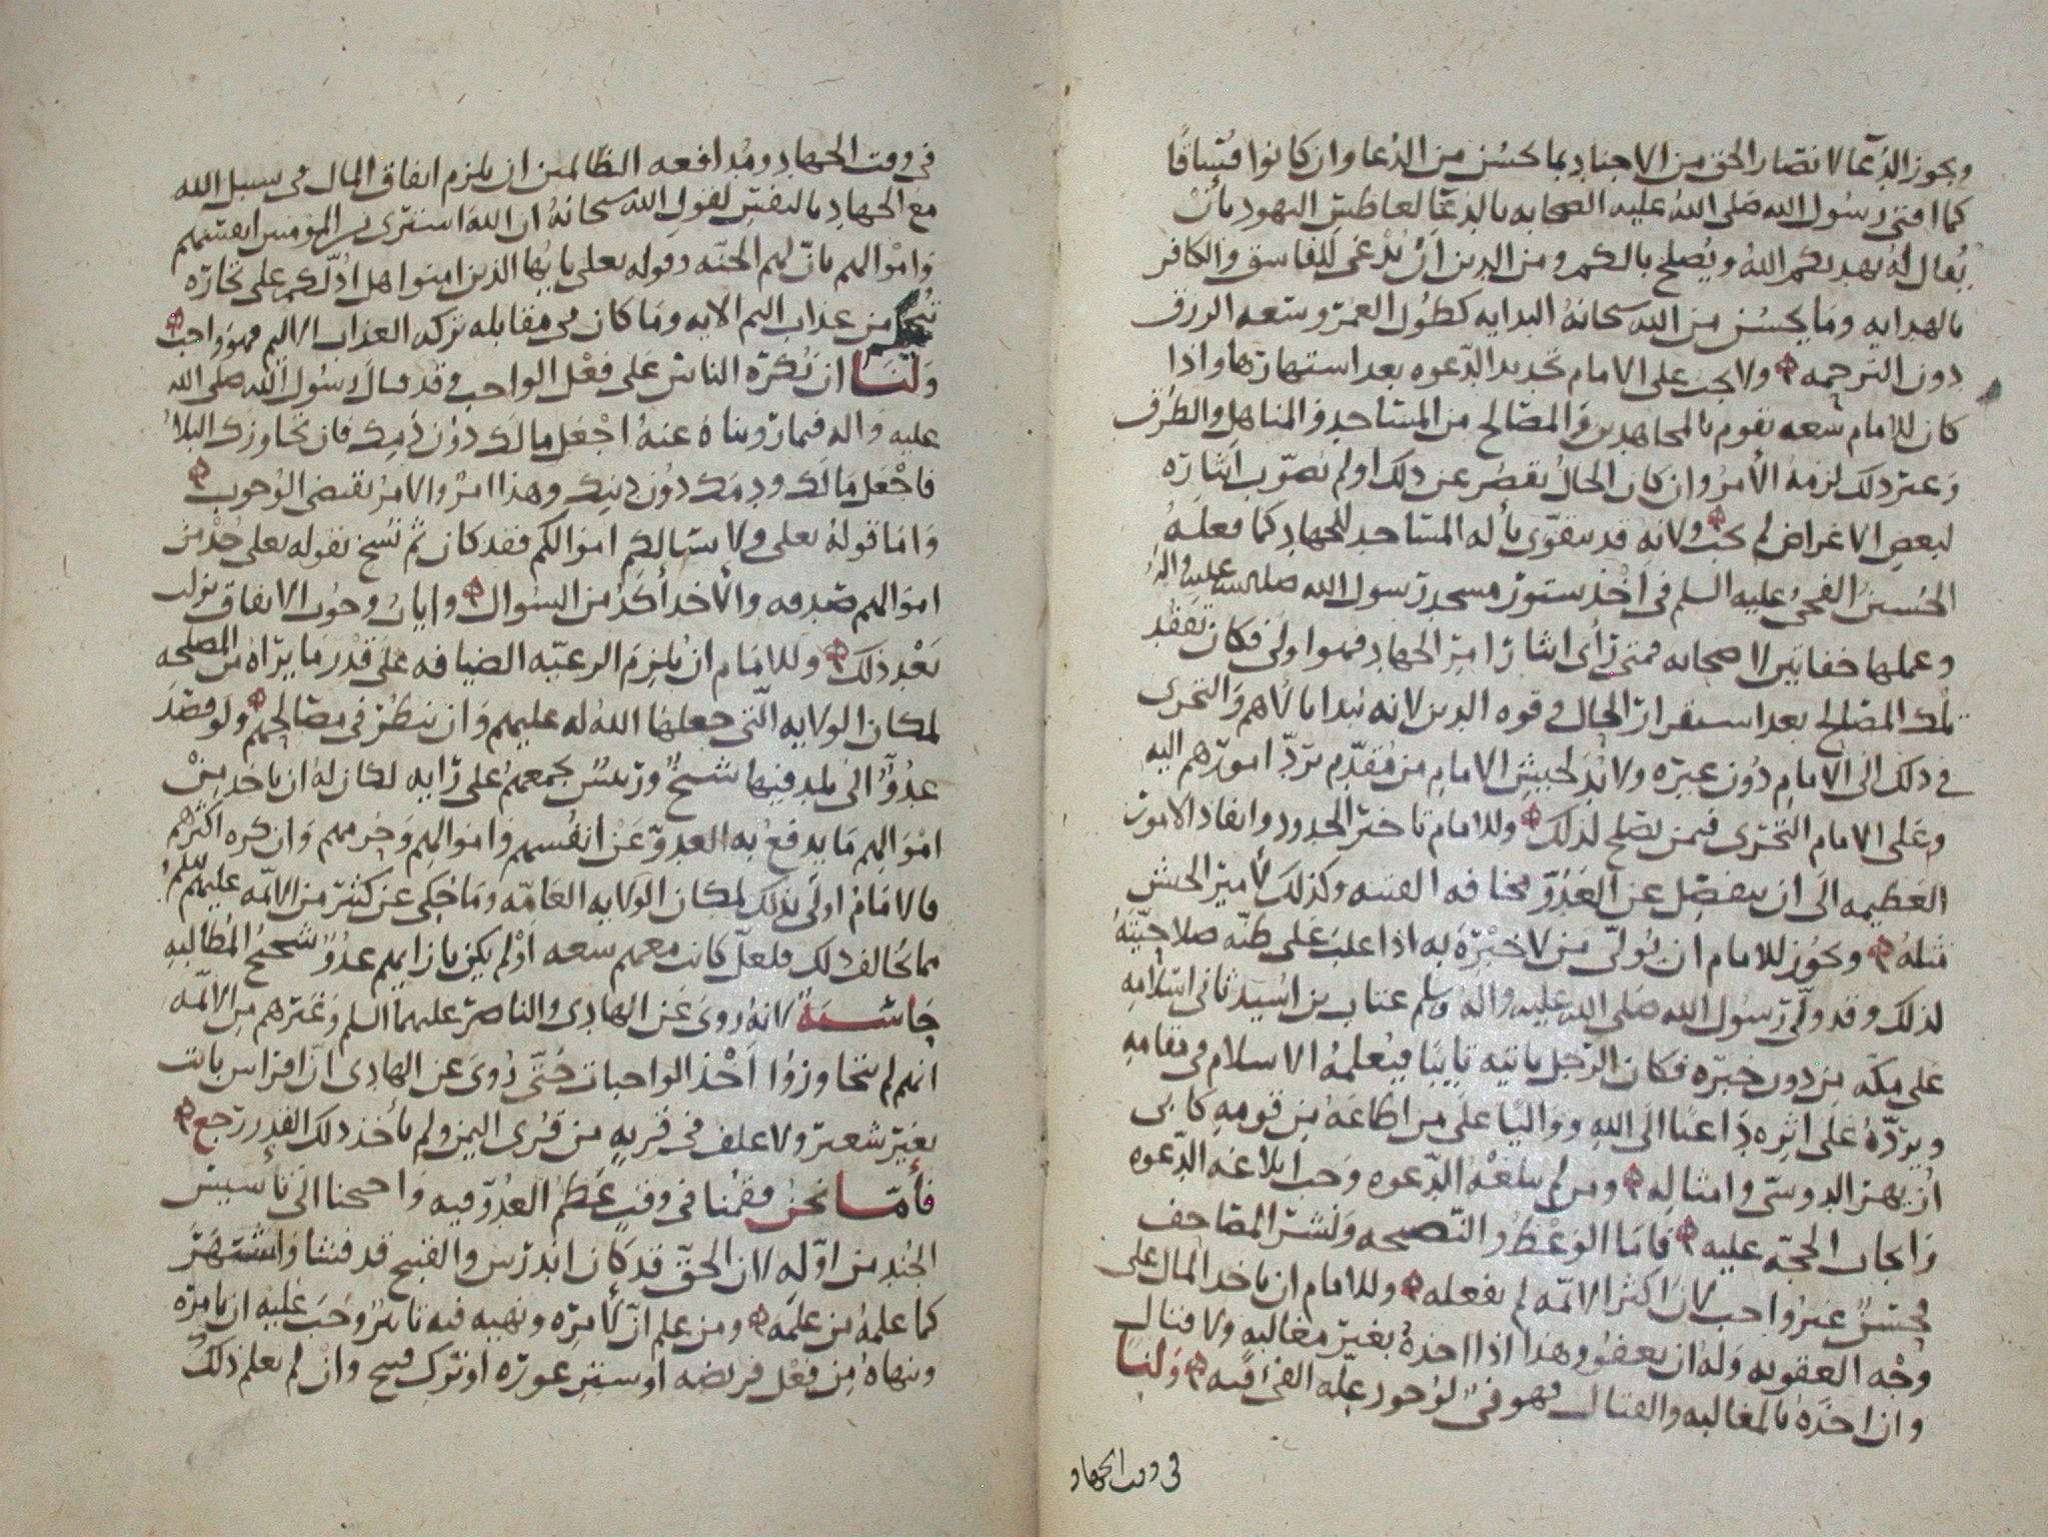 ويجوز الدعا لانصار الحق من الاجناد بما يحسن من الدعا وان كانوا فساقا
كما افتى رسول الله صلى الله عليه الصحابه بالدعا لعاطس اليهود بأن
يقال له يهديكم الله ويصلح بالكم ومن الدين ان يدعى للفاسق والكافر
بالهدايه وما يحسن من الله سبحانه البدايه كطول العمر وسعه الرزق
دون الترحمه ولا يجب على الامام تجديد الدعوه بعد اشتهارها واذا
كان للامام سعه تقوم بالمجاهدين والمصالح من المساجد والمناهل والطرق
وغير ذلك لزمه الأمر وان كان الحال يقصر عن ذلك او لم يصوب اثاره
لبعض الاغراض لم يجب ولانه قد يتقوى بأله المساجد للجهاد كما فعله
الحسين الفخي عليه السلم في اخذ ستور مسجد رسول الله صلى الله عليه واله
وعملها خفاتين لاصحابه فمتى رأى ايثار امر الجهاد فهو اولى فكان تفقد
تلك المصالح بعد استقرار الحال وقوه الدين لانه يبدا بالاهم والتحري
في ذلك الى الامام دون غيره ولا بد لجيش الامام من مقدم يرد امورهم اليه
وعلى الامام التحري فيمن يصلح لذلك وللامام تاخير الحدود وانفاذ الامور
العظيمه الى ان ينفصل عن العدو مخافه الفتنه وكذلك لأمير الجيش
مثله ويجوز للامام ان يولي من لا خبره به اذا غلب على ظنه صلاحيته
لذلك وقد ولى رسول الله صلى الله عليه واله وسلم عتاب بن اسيد ثاني اسلامه
على مكه من دون خبره فكان الرجل ياتيه تايبا فيعلمه الاسلام في مقامه
ويرده على اثره داعيا الى الله وواليا على من اطاعه من قومه كابي
ازيهر الدوسي وامثاله ومن لم تبلغه الدعوه وجب ابلاغه الدعوه
وايجاب الحجه عليه فاما الوعظ والنصيحه ونشر المصاحف
فحسن غير واجب لان اكثر الائمه لم يفعله وللامام ان ياخذ المال على
وجه العقوبه وله ان يعفو وهذا اذا اخذه بغير مغالبه ولا قتال
وان اخذه بالمغالبه والقتال فهو فيء لوجود عله الفيء فيه ولنا
في وقت الجهاد
في وقت الجهاد ومدافعه الظالمين ان يلزم انفاق المال في سبيل الله
مع الجهاد بالنفس لقول الله سبحانه ان الله اشترى من المؤمنين انفسهم
واموالهم بان لهم الجنه وقوله تعلى يايها الذين امنوا هل ادلكم على تجاره
تنجيكم من عذاب اليم الايه وما كان في مقابله تركه العذاب الاليم فهو واجب
ولنا ان نكره الناس على فعل الواجب وقد قال رسول الله صلى الله
عليه واله فيما رويناه عنه اجعل مالك دون دمك فان تجاوزك البلا
فاجعل مالك ودمك دون دينك وهذا امر والامر يقتضي الوجوب
واما قوله تعلى ولا يسالكم اموالكم فقد كان ثم نسخ بقوله تعلى خذ من
اموالهم صدقه والأخذ أكد من السؤال وايات وجوب الانفاق نزلت
بعد ذلك وللامام ان يلزم الرعيه الضيافه على قدر ما يراه من المصلحه
لمكان الولايه التي جعلها الله له عليهم وان ينظر في مصالحهم ولو قصد
عدو الى بلد فيها شيخ ورئيس يجمعهم على رايه لكان له ان ياخذ من
اموالهم ما يدفع به العدو عن انفسهم واموالهم وحرمهم وان كره اكثرهم
فالامام اولى بذلك لمكان الولايه العامه وما حكي عن كثير من الائمه عليهم السلم
مما يخالف ذلك فلعل كانت معهم سعه او لم يكن بازايهم عدو شحيح المطالبه
لانه روي عن الهادي والناصر عليهما السلم وغيرهم من الائمه
انهم لم يتجاوزوا اخذ الواجبات حتى روي عن الهادي ان افراس باتت
بغير شعير ولا علف في قريه من قرى اليمن ولم يأخذ ذلك القدر رجع
فأما نحن فقمنا في وقت عظم العدو فيه واحتجنا الى تأسيس
الجند من اوله لان الحق قد كان اندرس والقبيح قد فشا واشتهر
كما علمه من علمه ومن علم ان لامره ونهيه فيه تاثير وجب عليه ان يامره
وينهاه من فعل فريضه او ستر عوره او ترك قبيح وان لم يعلم ذلك